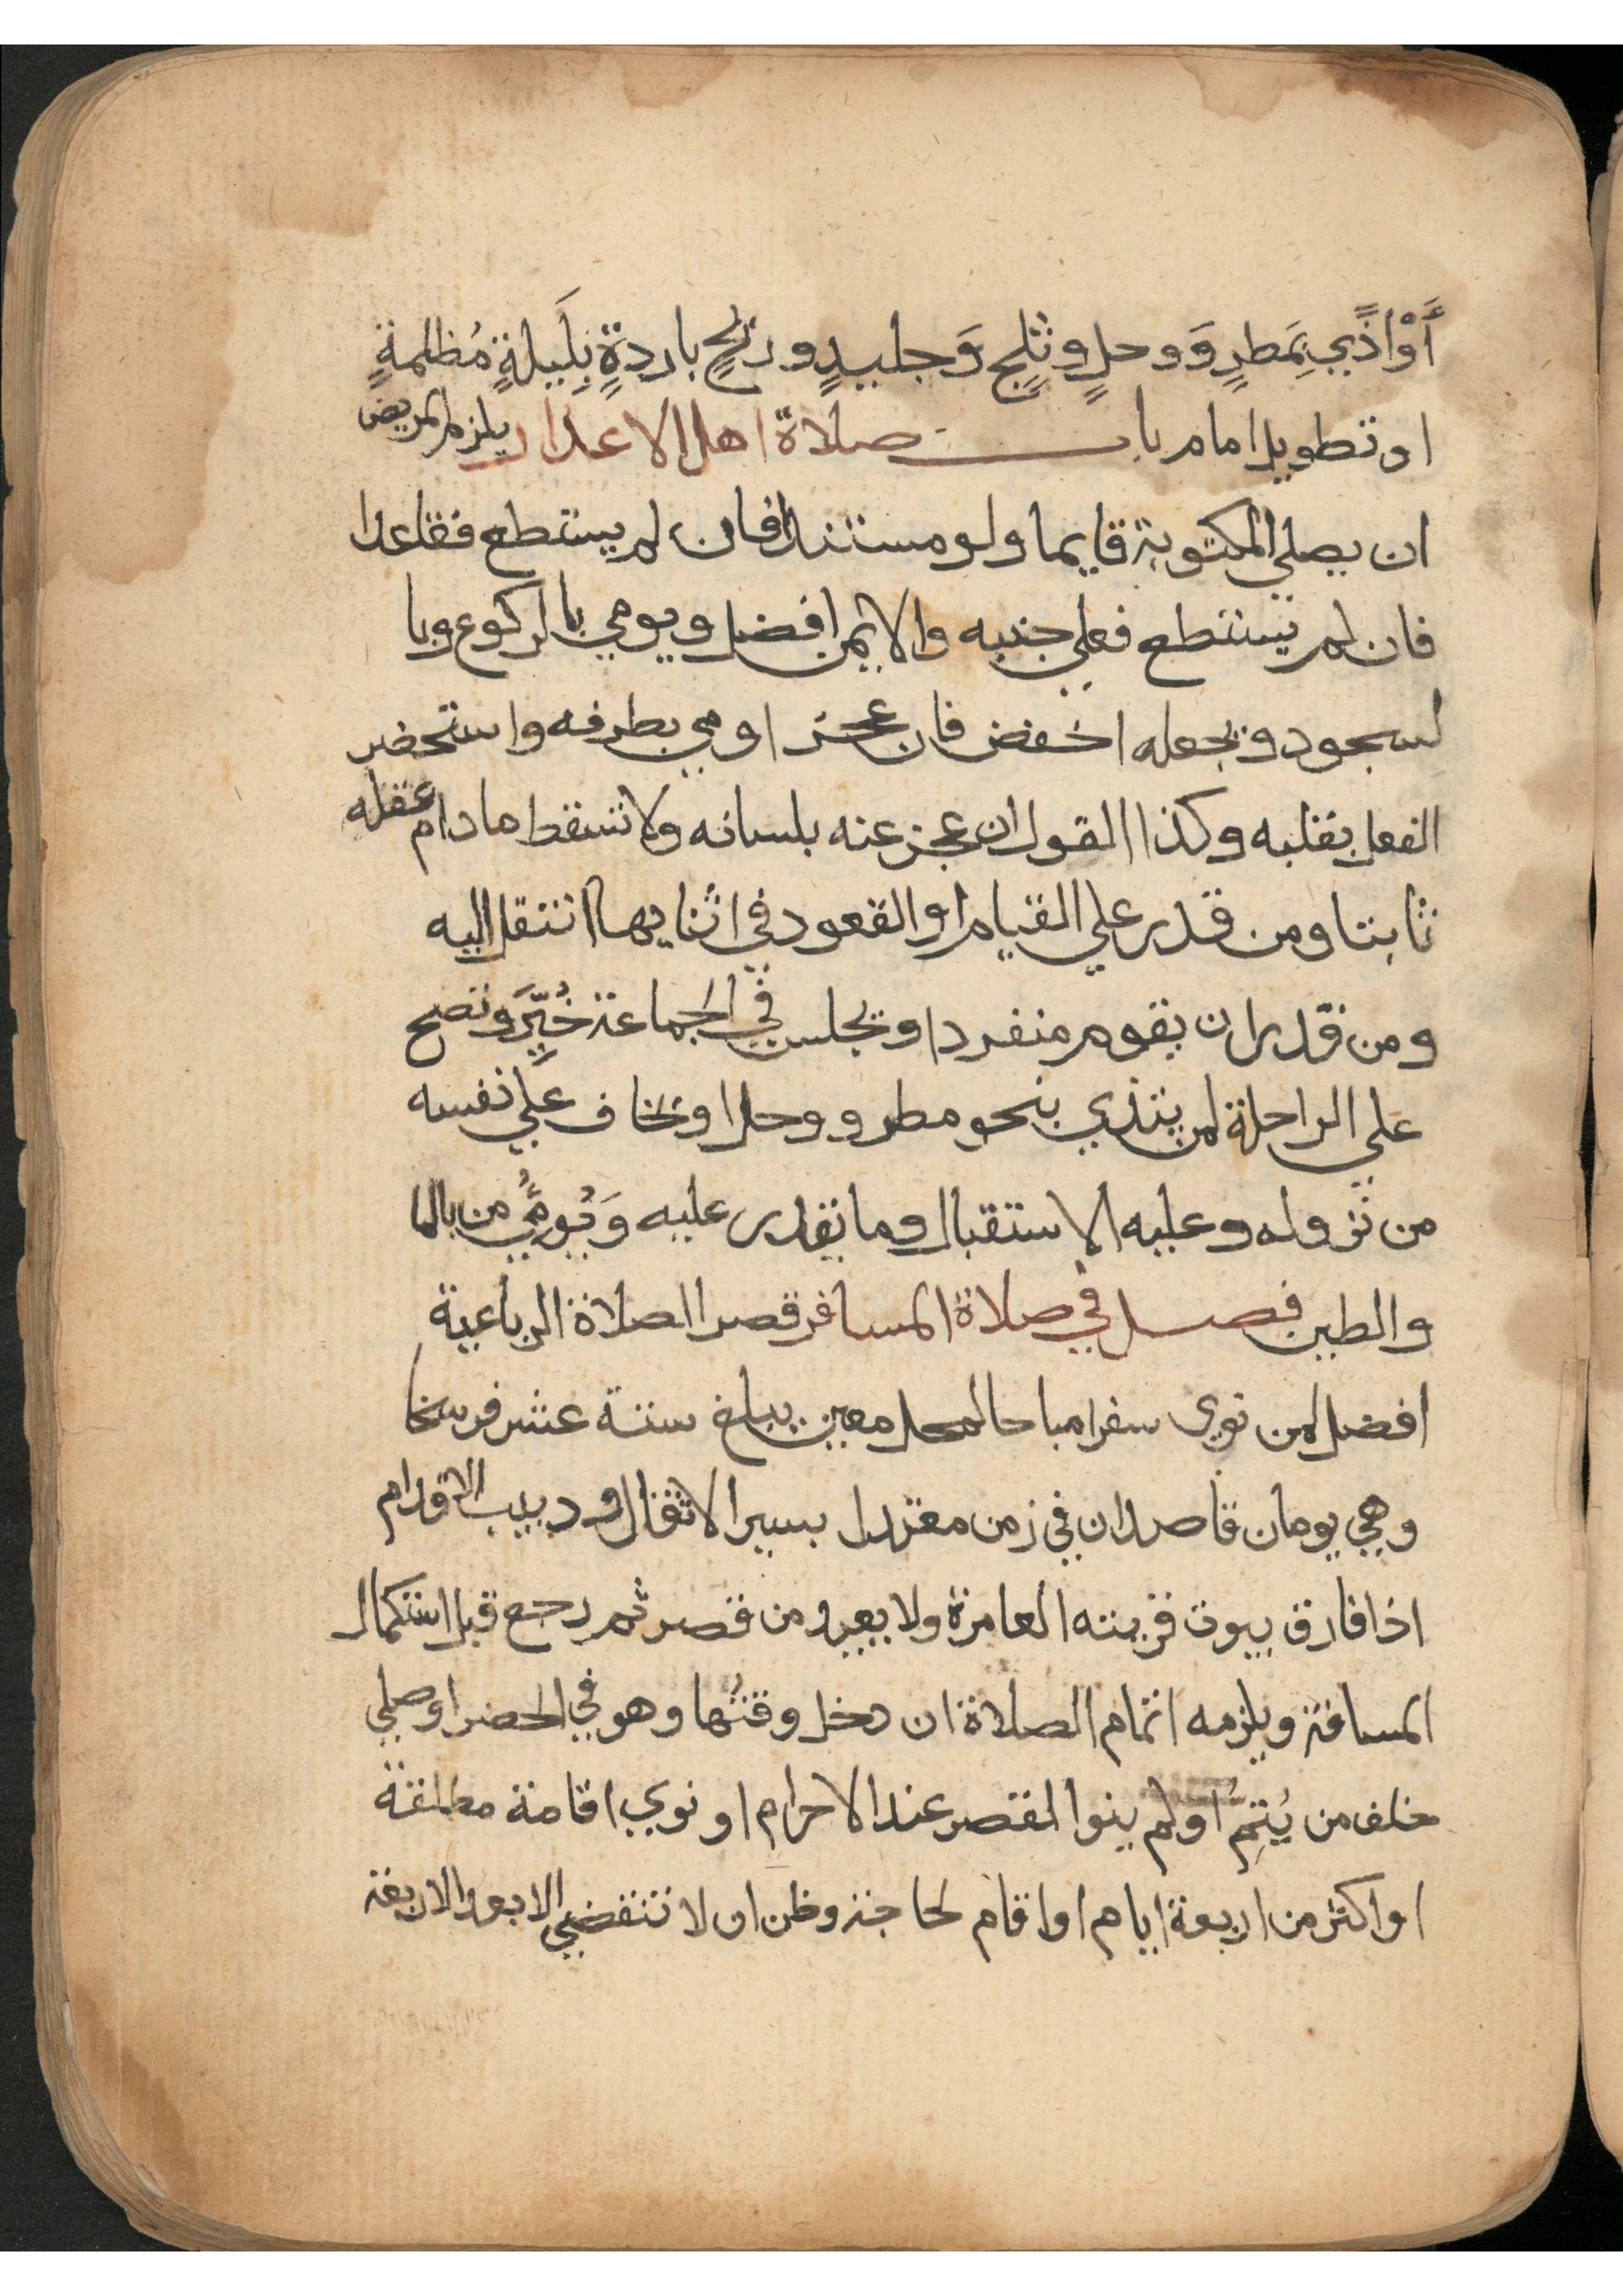 أَوْ اذًي بِمَطرٍ وَ وحلٍ وثلجٍ وَجليدٍ وريحٍ باردةٍ بِلَيلةٍ مُظلمةٍ
او تطويل امام باب صلاة اهل الاعذار يلزم المريض
ان يصلي المكتوبة قايما ولو مستندا فان لم يستطع فقاعدا
فان لم يستطع فعلي جنبه والايمن افضل ويومي بالركوع وبا
لسجود ويجعله اخفض فان عجز اومي بطرفه واستحضر
الفعل بقلبه وكذا القول ان عجز عنه بلسانه ولا تسقط ما دام عقله
ثابتا ومن قدر علي القيام او القعود في اثنايها انتقل اليه
ومن قدر ان يقوم منفردا ويجلس في الجماعة خُيّرَ وتصح
علي الراحلة لمن يتذي بنحو مطر ووحل او يخاف علَي نفسه
من نزوله وعليه الاستقبال وما يقدر عليه وَيُومُي من بالما
والطين فصل في صلاة المسافر قصر الصلاة الرباعية
افضل لمن نوي سفرا مباحا لمحل معين يبلغ ستة عشر فرسخا
وهي يومان قاصدان في زمن معتدل بسير الاثقال ودبيب الاقدام
اذا فارق بيوت قريته العامرة ولا يعيد من قصر ثم رجع قبل استكمال
المسافة ويلزمه اتمام الصلاة ان دخل وقتُها وهو في الحضر او صلي
خلف من يُتِمُ او لم ينوا لقصر عند الاحرام او نوي اقامة مطلقة
او اكثر من اربعة ايام او اقام لحاجة وظن ان لا تنقضي الا بعد الاربعة